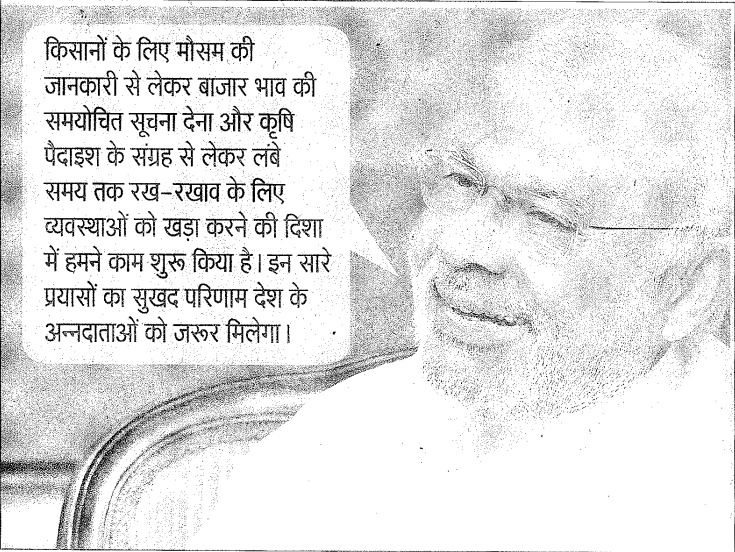 किसानों के लिए मौसम की
जानकारी से लेकर बाजार भाव की
समयोचित सूचना देना और कृषि
पैदाइश के संग्रह से लेकर लंबे
समय तक रख-रखाव के लिए
व्यवस्थाओं को खड़ा करने की दिशा
में हमने काम शुरू किया है। इन सारे
प्रयासों का सुखद परिणाम देश के
अन्नदाताओं को जरूर मिलेगा।